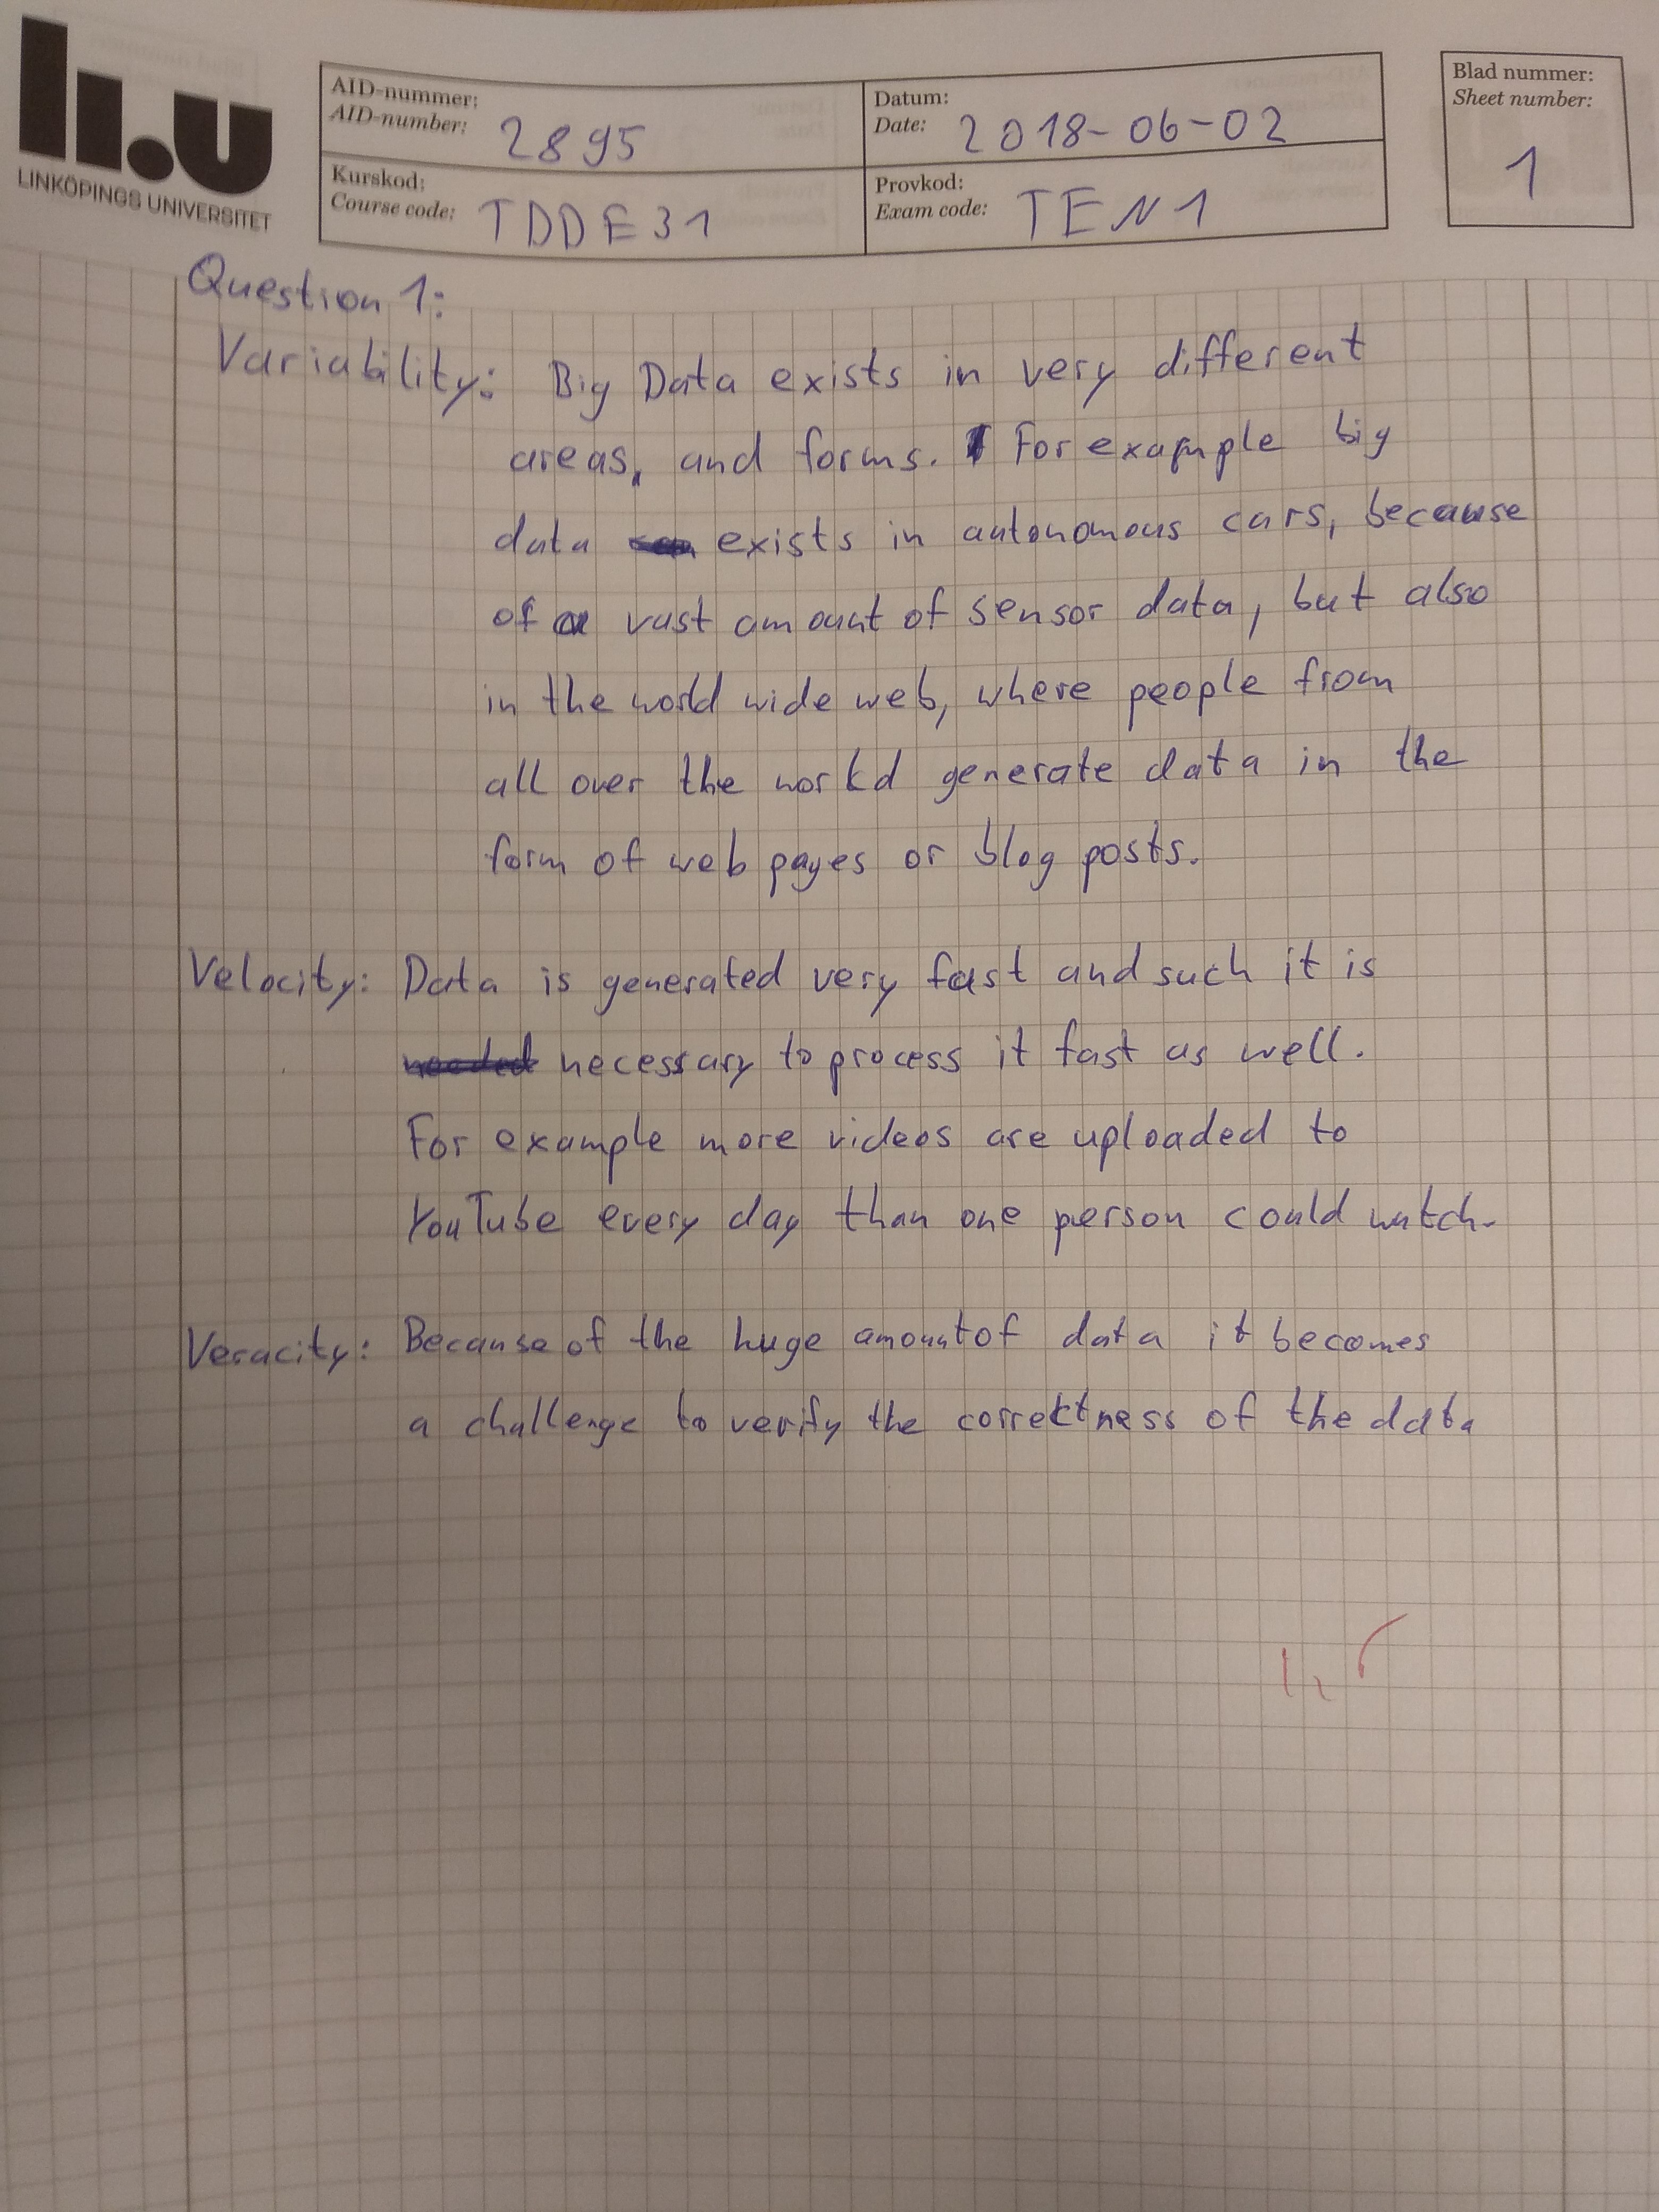 li.u
LINKÖPINGS UNIVERSITET
AID-nummer:
AID-number: 2895
Datum:
Date: 2018-06-02
Kurskod:
Course code: TDDE31
Provkod:
Exam code: TEN1
Blad nummer:
Sheet number:
1
Question 1:
Variability: Big Data exists in very different
areas, and forms. For example big
data exists in autonomous cars, because
of a vast amount of sensor data, but also
in the world wide web, where people from
all over the world generate data in the
form of web pages or blog posts.
Velocity: Data is generated very fast and such it is
needed necessary to process it fast as well.
For example more videos are uploaded to
YouTube every day than one person could watch.
Veracity: Because of the huge amount of data it becomes
a challenge to verify the correktness of the data
1,5